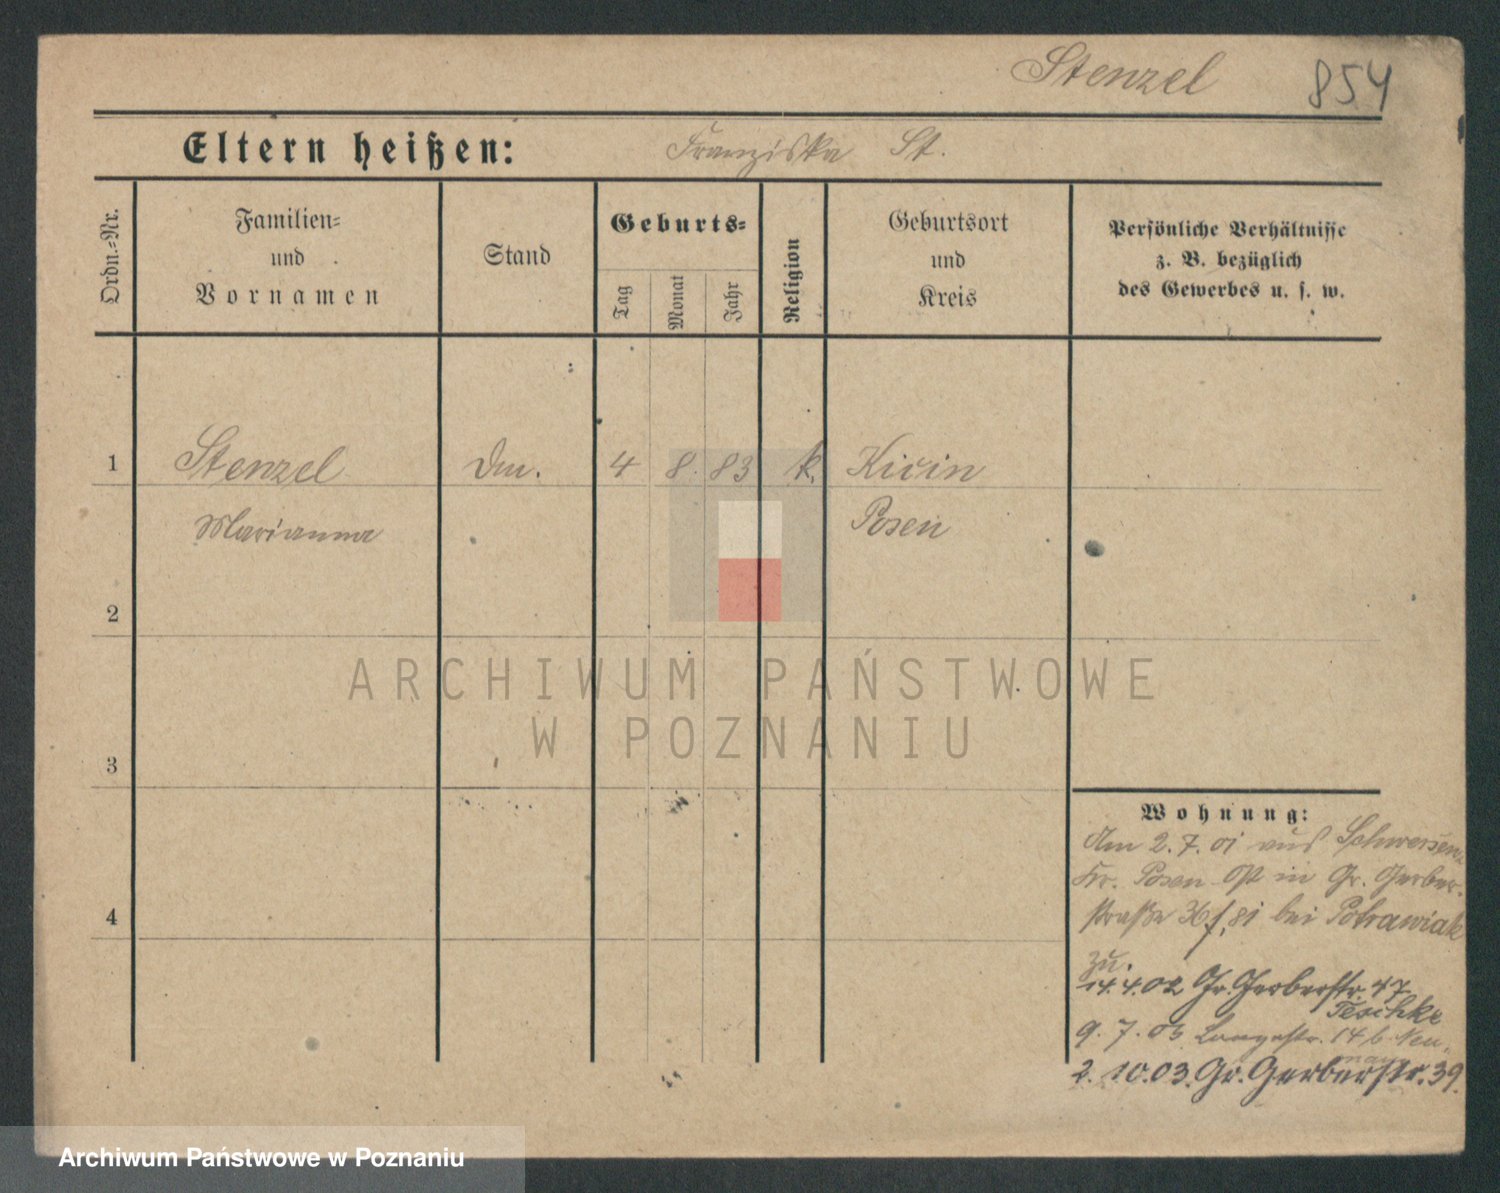 Stenzel 854
Eltern heißen: Franziska St.
Ordn.=Nr.
Familien=
und
Vornamen
Stand
Geburts=
Tag
Monat
Jahr
Religion
Geburtsort
und
Kreis
Persönliche Verhältnisse
z. B. bezüglich
des Gewerbes u. s. w.
1 Stenzel 4 8. 83 k. Kicin
Marianna Posen
2
3
4
Wohnung:
Am 2.7.01 aus Schwersenz
Kr. Posen Ost in Gr. Gerber-
straße bei Potrawiak
zu.
14.4.02 Gr. Gerberstr. 47
Teschke
9.7.03 Langestr. 14 b. Neu-
mann
2.10.03. Gr. Gerberstr. 39.
ARCHIWUM PAŃSTWOWE
W POZNANIU
Archiwum Państwowe w Poznaniu